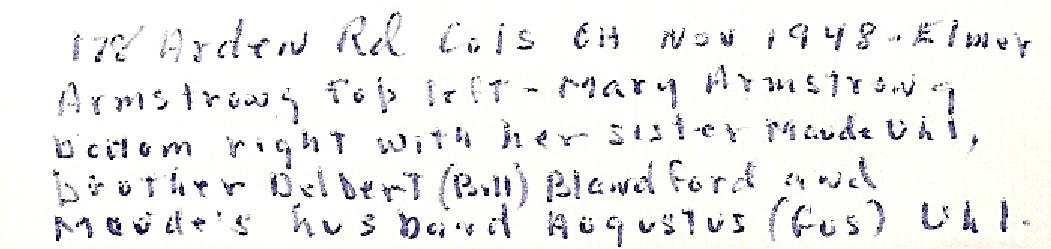 178 Arden Rd Cols OH Nov 1948 - Elmer
Armstrong top left - Mary Armstrong
bottom right with her sister Maude Uhl,
brother Delbert (Bill) Blandford and
Maude's husband Augustus (Gus) Uhl.